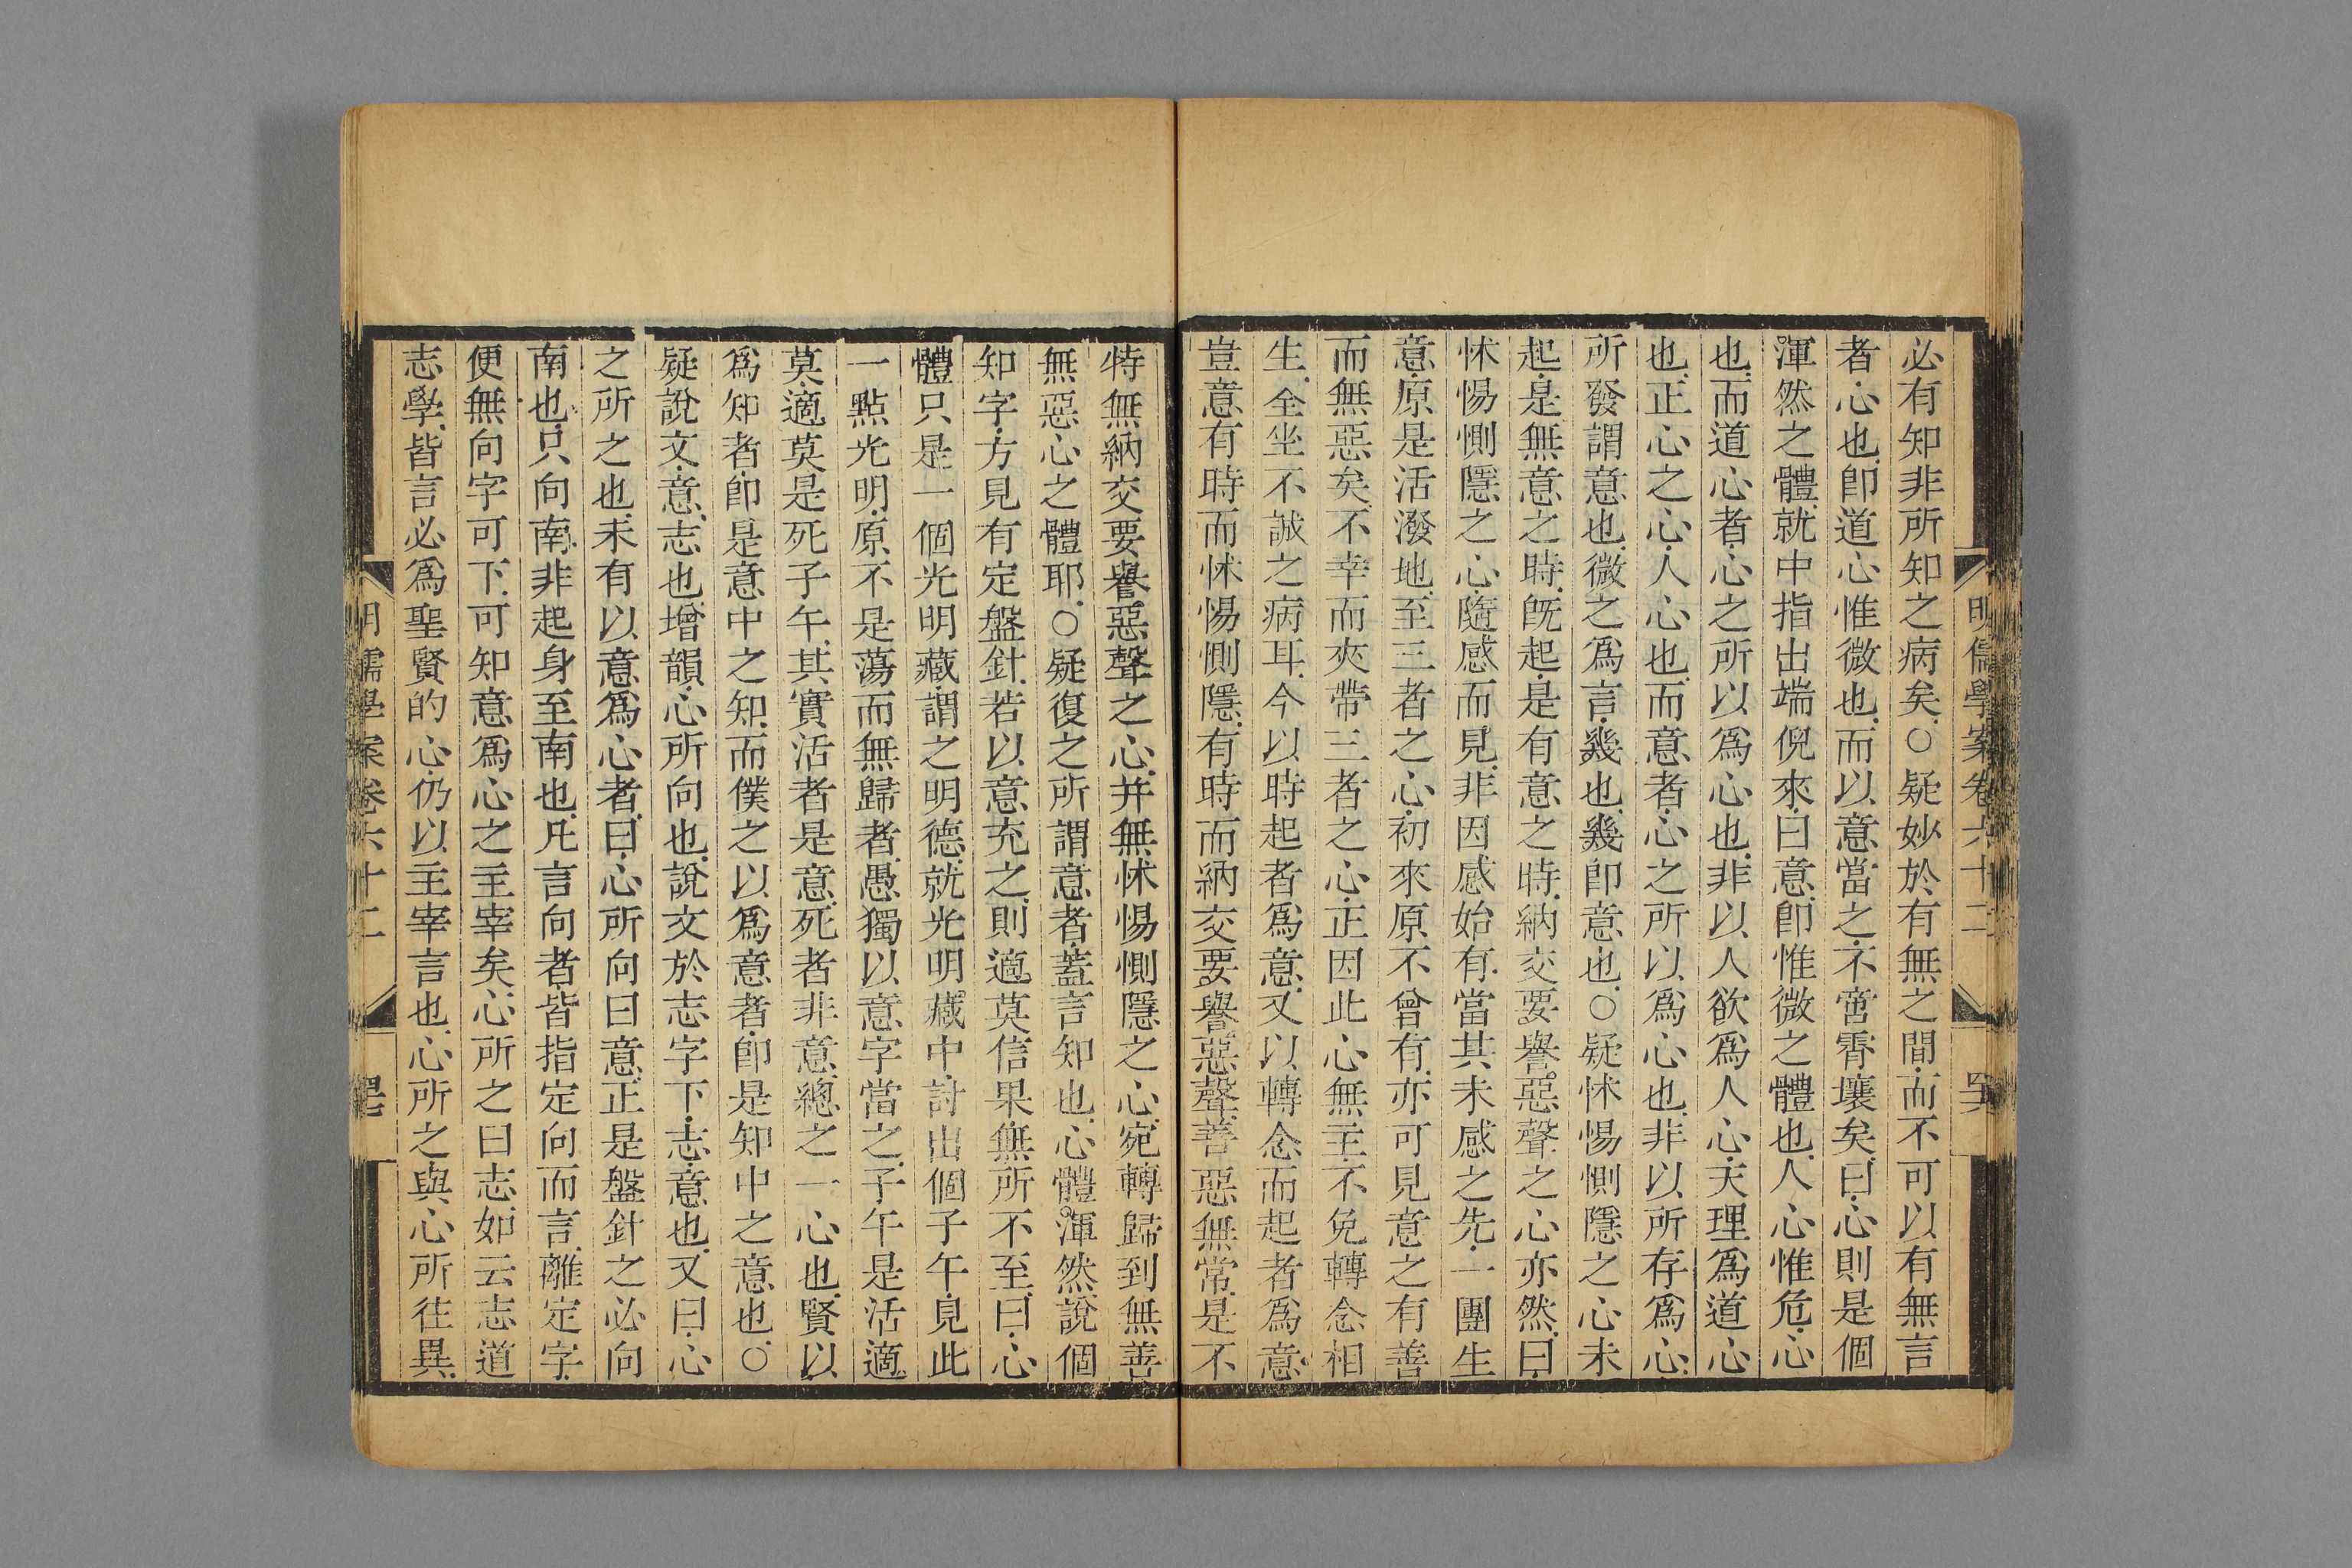 明儒學案卷六十二
必有知非所知之病矣○疑妙於有無之間而不可以有無言
者心也卽道心惟微也而以意當之不啻霄壤矣曰心則是個
渾然之體就中指出端倪來曰意卽惟微之體也人心惟危心
也而道心者心之所以爲心也非以人欲爲人心天理爲道心
也正心之心人心也而意者心之所以爲心也非以所存爲心
所發謂意也微之爲言幾也幾卽意也○疑怵惕惻隱之心未
起是無意之時旣起是有意之時納交要譽惡聲之心亦然曰
怵惕惻隱之心隨感而見非因感始有當其未感之先一團生
意原是活潑地至三者之心初來原不曾有亦可見意之有善
而無惡矣不幸而夾帶三者之心正因此心無主不免轉念相
生全坐不誠之病耳今以時起者爲意又以轉念而起者爲意
豈意有時而怵惕惻隱有時而納交要譽惡聲善惡無常是不
特無納交要譽惡聲之心并無怵惕惻隱之心宛轉歸到無善
無惡心之體耶○疑復之所謂意者蓋言知也心體渾然說個
知字方見有定盤針若以意充之則適莫信果無所不至曰心
體只是一個光明藏謂之明德就光明藏中討出個子午見此
一點光明原不是蕩而無歸者愚獨以意字當之子午是活適
莫適莫是死子午其實活者是意死者非意總之一心也賢以
爲知者卽是意中之知而僕之以爲意者卽是知中之意也○
疑說文意志也增韻心所向也說文於志字下志意也又曰心
之所之也未有以意爲心者曰心所向曰意正是盤針之必向
南也只向南非起身至南也凡言向者皆指定向而言離定字
便無向字可下可知意爲心之主宰矣心所之曰志如云志道
志學皆言必爲聖賢的心仍以主宰言也心所之與心所往異
明儒學案卷六十二